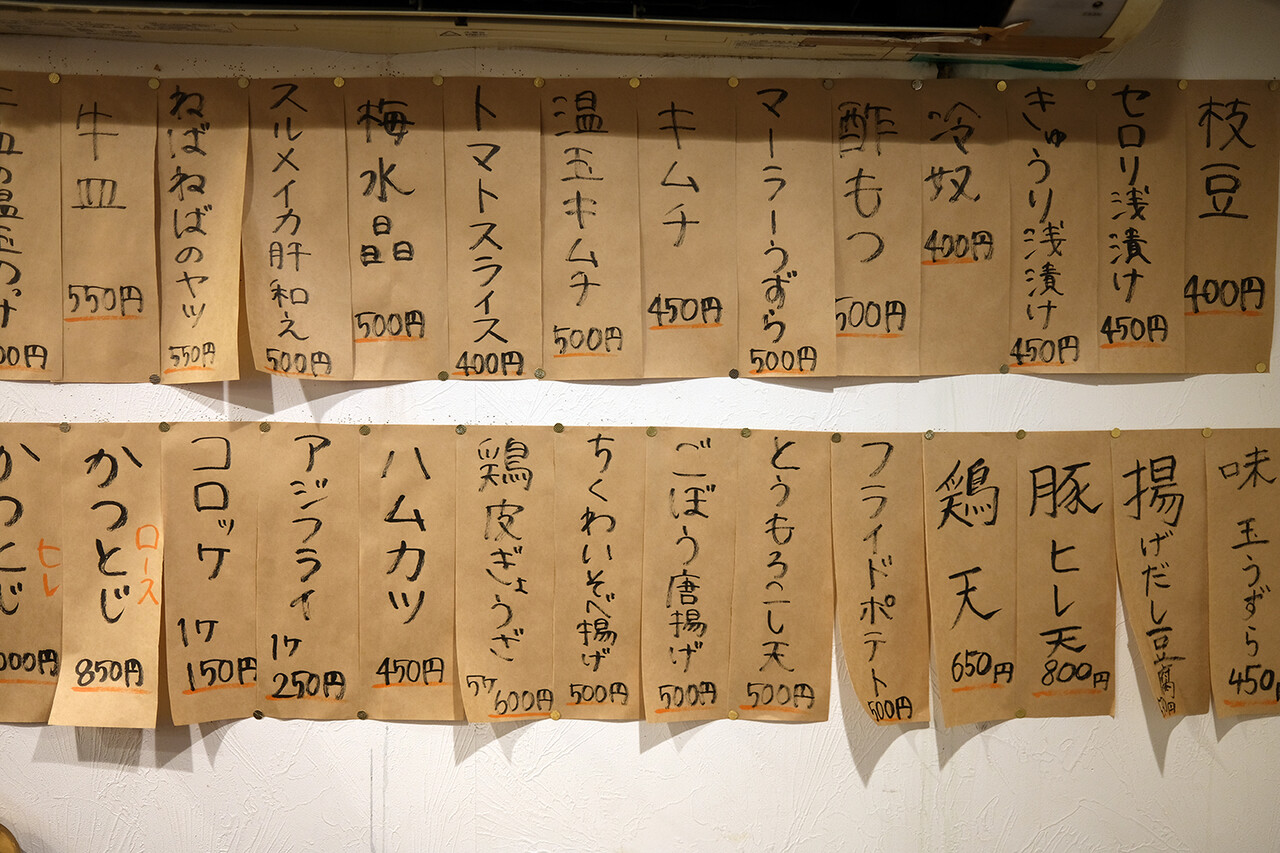 枝豆
400円
セロリ浅漬け
450円
きゅうり浅漬け
450円
冷奴
400円
酢もつ
500円
マーラーうずら
500円
キムチ
450円
温玉キムチ
500円
トマトスライス
400円
梅水晶
500円
スルメイカ肝和え
500円
ねばねばのヤツ
550円
牛皿
550円
の温玉のっけ
00円
味玉うずら
450円
揚げだし豆腐
豚ヒレ天
800円
鶏天
650円
フライドポテト
500円
とうもろこし天
500円
ごぼう唐揚げ
500円
ちくわいそべ揚げ
500円
鶏皮ぎょうざ
5ケ
600円
ハムカツ
450円
アジフライ
1ケ
250円
コロッケ
1ケ
150円
かつとじ
ロース
850円
かつとじ
ヒレ
000円